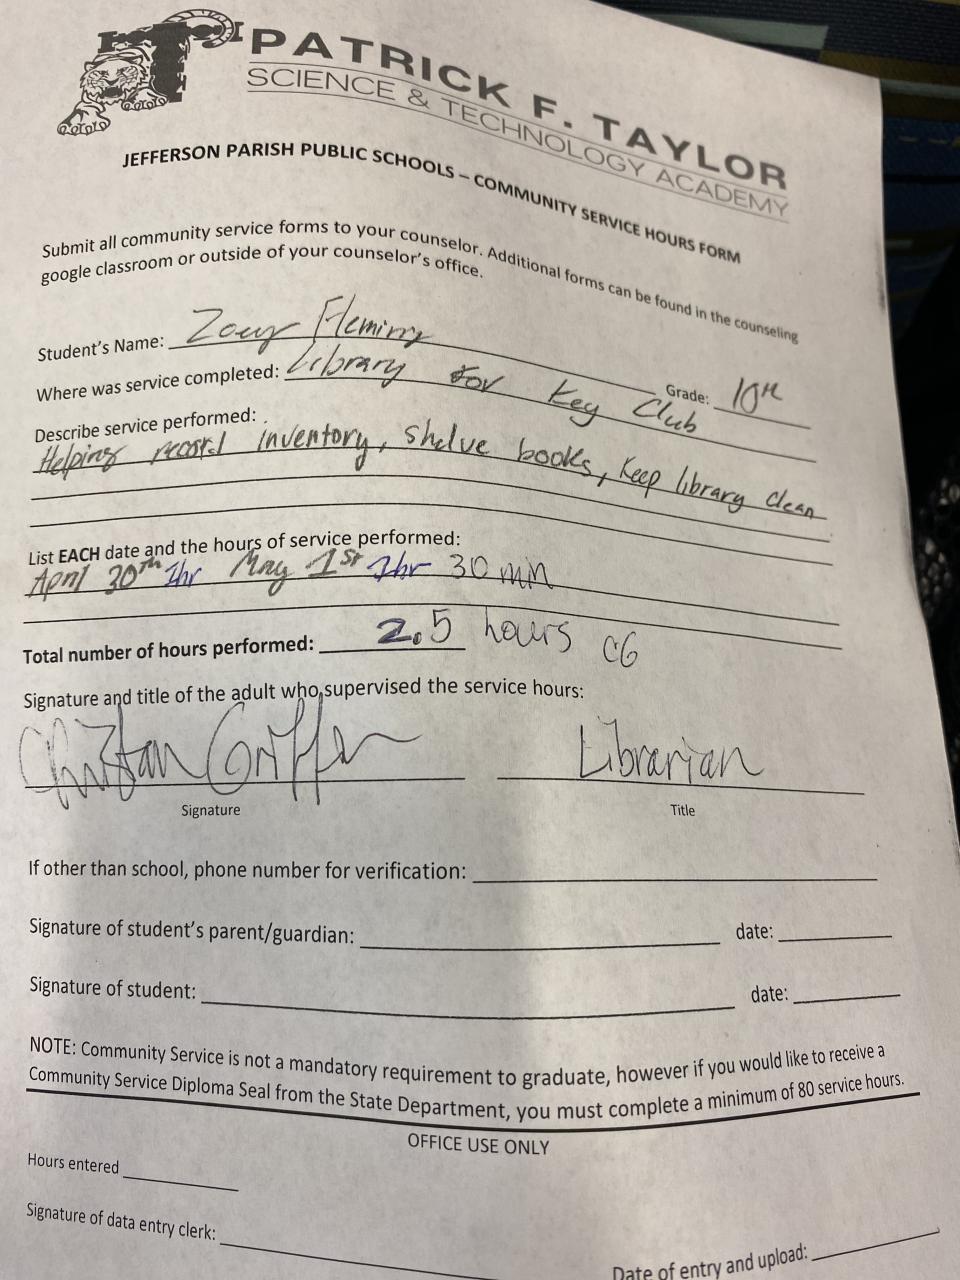 PATRICK F. TAYLOR
SCIENCE & TECHNOLOGY ACADEMY
JEFFERSON PARISH PUBLIC SCHOOLS – COMMUNITY SERVICE HOURS FORM
Submit all community service forms to your counselor. Additional forms can be found in the counseling
google classroom or outside of your counselor's office.
Student's Name: Zoey Fleming Grade: 10th
Where was service completed: Library for Key Club
Describe service performed:
Helping record inventory, shelve books, keep library clean
List EACH date and the hours of service performed:
April 30th 1hr May 1st 1hr 30 min
Total number of hours performed: 2.5 hours CG
Signature and title of the adult who supervised the service hours:
Griffin Librarian
Signature Title
If other than school, phone number for verification:
Signature of student's parent/guardian: date:
Signature of student: date:
NOTE: Community Service is not a mandatory requirement to graduate, however if you would like to receive a
Community Service Diploma Seal from the State Department, you must complete a minimum of 80 service hours.
OFFICE USE ONLY
Hours entered
Signature of data entry clerk:
Date of entry and upload: